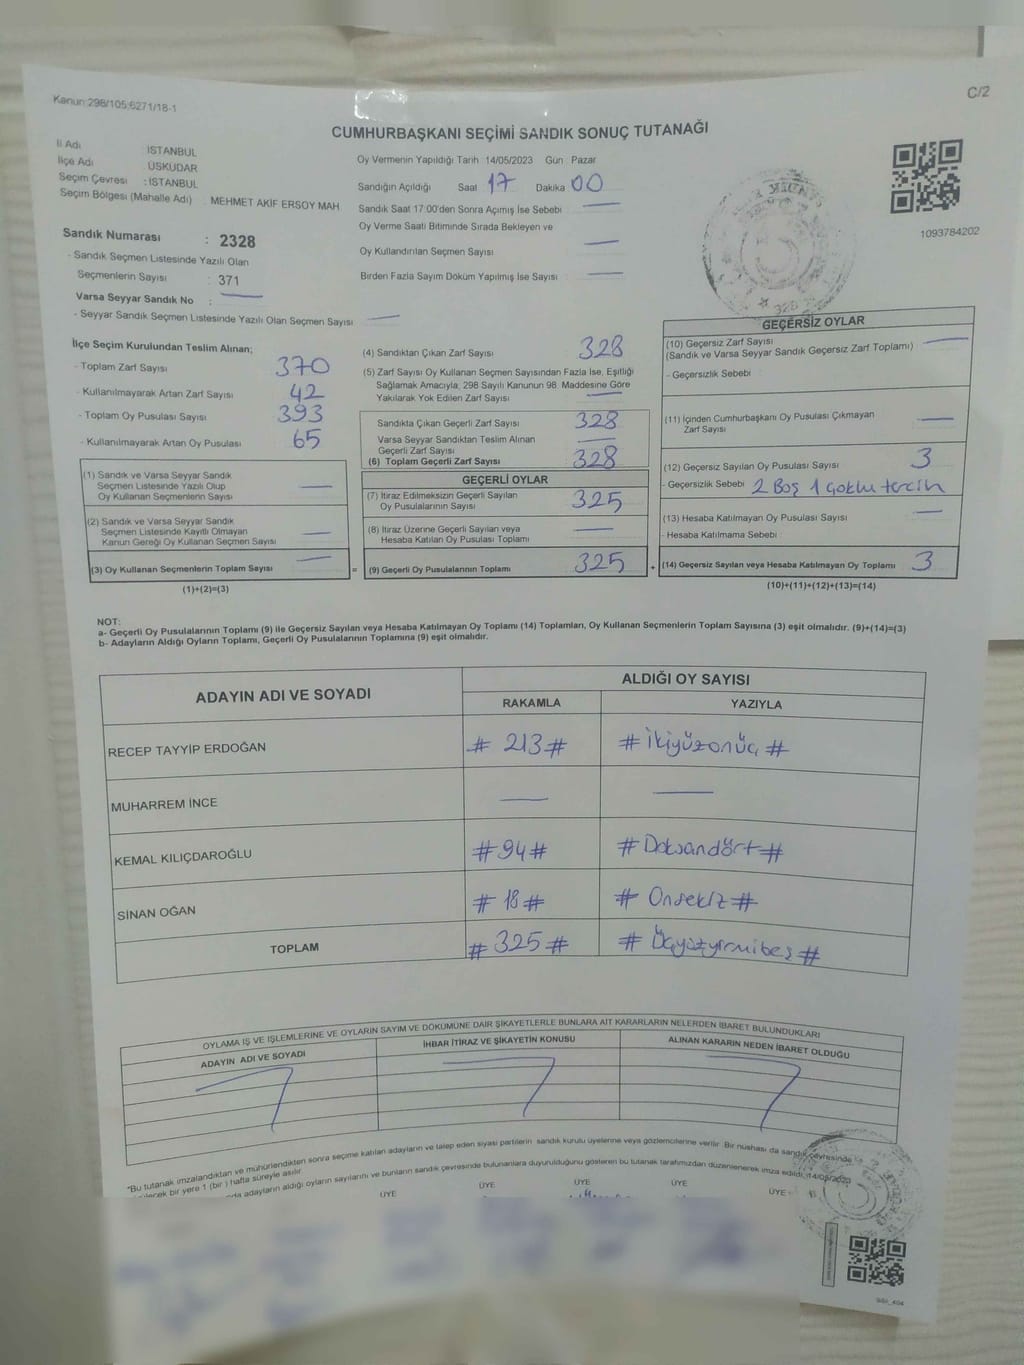 Kanun:298/105;6271/18-1
C/2
CUMHURBAŞKANI SEÇİMİ SANDIK SONUÇ TUTANAĞI
İl Adı : İSTANBUL
İlçe Adı : ÜSKÜDAR
Seçim Çevresi : İSTANBUL
Seçim Bölgesi (Mahalle Adı) : MEHMET AKİF ERSOY MAH
Sandık Numarası : 2328
- Sandık Seçmen Listesinde Yazılı Olan
Seçmenlerin Sayısı : 371
Varsa Seyyar Sandık No :
- Seyyar Sandık Seçmen Listesinde Yazılı Olan Seçmen Sayısı
Oy Vermenin Yapıldığı Tarih 14/05/2023 Gün Pazar
Sandığın Açıldığı Saat 17 Dakika 00
Sandık Saat 17:00'den Sonra Açımış İse Sebebi
Oy Verme Saati Bitiminde Sırada Bekleyen ve
Oy Kullandırılan Seçmen Sayısı
Birden Fazla Sayım Döküm Yapılmış İse Sayısı
1093784202
İlçe Seçim Kurulundan Teslim Alınan;
- Toplam Zarf Sayısı 370
- Kullanılmayarak Artan Zarf Sayısı 42
- Toplam Oy Pusulası Sayısı 393
- Kullanılmayarak Artan Oy Pusulası 65
(1) Sandık ve Varsa Seyyar Sandık
Seçmen Listesinde Yazılı Olup
Oy Kullanan Seçmenlerin Sayısı
(2) Sandık ve Varsa Seyyar Sandık
Seçmen Listesinde Kayıtlı Olmayan
Kanun Gereği Oy Kullanan Seçmen Sayısı
(3) Oy Kullanan Seçmenlerin Toplam Sayısı
(1)+(2)=(3)
(4) Sandıktan Çıkan Zarf Sayısı 328
(5) Zarf Sayısı Oy Kullanan Seçmen Sayısından Fazla İse, Eşitliği
Sağlamak Amacıyla, 298 Sayılı Kanunun 98. Maddesine Göre
Yakılarak Yok Edilen Zarf Sayısı
Sandıkta Çıkan Geçerli Zarf Sayısı 328
Varsa Seyyar Sandıktan Teslim Alınan
Geçerli Zarf Sayısı
(6) Toplam Geçerli Zarf Sayısı 328
GEÇERLİ OYLAR
(7) İtiraz Edilmeksizin Geçerli Sayılan
Oy Pusulalarının Sayısı 325
(8) İtiraz Üzerine Geçerli Sayılan veya
Hesaba Katılan Oy Pusulası Toplamı
= (9) Geçerli Oy Pusulalarının Toplamı 325
GEÇERSİZ OYLAR
(10) Geçersiz Zarf Sayısı
(Sandık ve Varsa Seyyar Sandık Geçersiz Zarf Toplamı)
- Geçersizlik Sebebi
(11) İçinden Cumhurbaşkanı Oy Pusulası Çıkmayan
Zarf Sayısı
(12) Geçersiz Sayılan Oy Pusulası Sayısı 3
- Geçersizlik Sebebi 2 Boş 1 Çoklu tercih
(13) Hesaba Katılmayan Oy Pusulası Sayısı
- Hesaba Katılmama Sebebi
+ (14) Geçersiz Sayılan veya Hesaba Katılmayan Oy Toplamı 3
(10)+(11)+(12)+(13)=(14)
NOT:
a- Geçerli Oy Pusulalarının Toplamı (9) ile Geçersiz Sayılan veya Hesaba Katılmayan Oy Toplamı (14) Toplamları, Oy Kullanan Seçmenlerin Toplam Sayısına (3) eşit olmalıdır. (9)+(14)=(3)
b- Adayların Aldığı Oyların Toplamı, Geçerli Oy Pusulalarının Toplamına (9) eşit olmalıdır.
ADAYIN ADI VE SOYADI
ALDIĞI OY SAYISI
RAKAMLA YAZIYLA
RECEP TAYYİP ERDOĞAN # 213 # # İkiyüzonüç #
MUHARREM İNCE
KEMAL KILIÇDAROĞLU # 94 # # Doksandört #
SİNAN OĞAN # 18 # # Onsekiz #
TOPLAM # 325 # # Üçyüzyirmibeş #
OYLAMA İŞ VE İŞLEMLERİNE VE OYLARIN SAYIM VE DÖKÜMÜNE DAİR ŞİKAYETLERLE BUNLARA AİT KARARLARIN NELERDEN İBARET BULUNDUKLARI
ADAYIN ADI VE SOYADI İHBAR İTİRAZ VE ŞİKAYETİN KONUSU ALINAN KARARIN NEDEN İBARET OLDUĞU
"Bu tutanak imzalandıktan ve mühürlendikten sonra seçime katılan adayların ve talep eden siyasi partilerin sandık kurulu üyelerine veya gözlemcilerine verilir. Bir nüshası da sandık çevresinde
bir yere 1 (bir ) hafta süreyle asılır.
adayların aldığı oyların sayılarını ve bunların sandık çevresinde bulunanlara duyurulduğunu gösteren bu tutanak tarafımızdan düzenlenerek imza edildi. 14/05/2023
ÜYE ÜYE ÜYE ÜYE ÜYE ÜYE